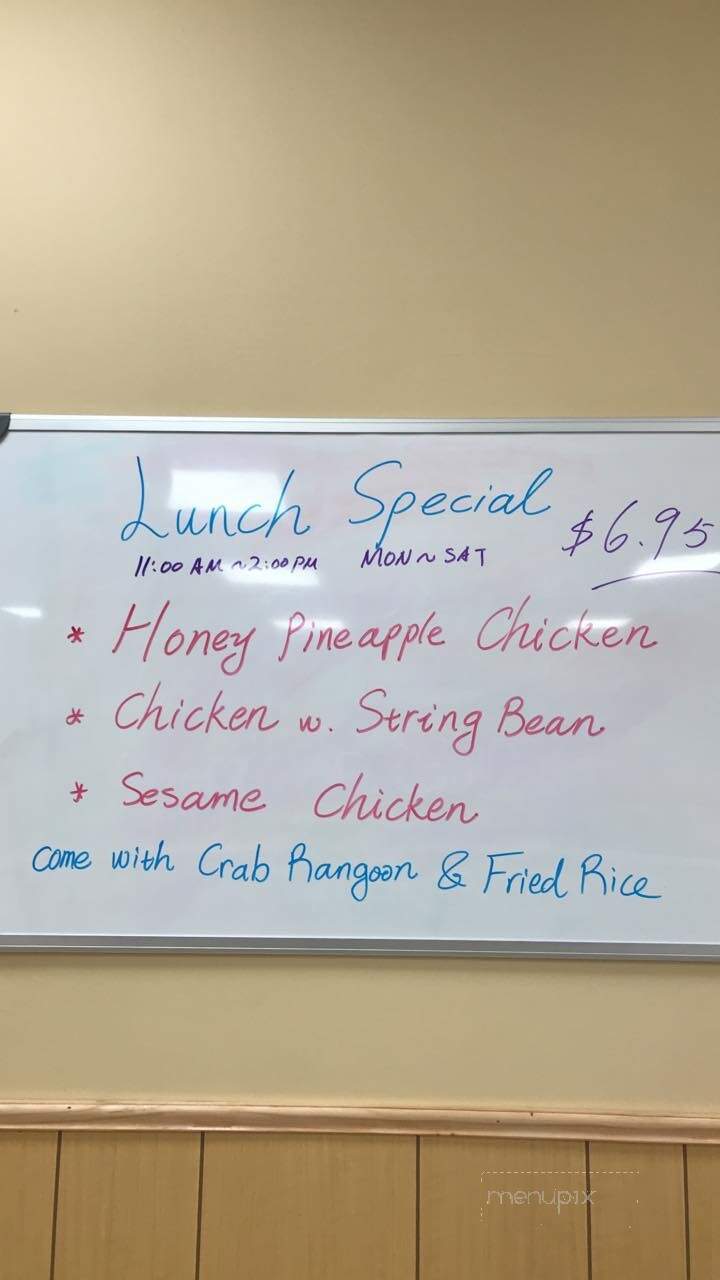 Lunch Special
$6.95
11:00 AM ~ 2:00 PM MON ~ SAT
* Honey Pineapple Chicken
* Chicken w. String Bean
* Sesame Chicken
Come with Crab Rangoon & Fried Rice
menupix